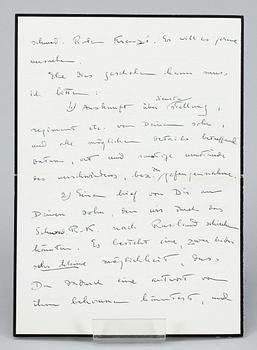 schwed. Roten Kreuz's. Es will es gerne
versuchen.
Ehe das geschehen kann muss
ich bitten:
1) Auskunft über Dienststellung,
regiment etc. von Deinem sohn,
und alle möglichen details betreffend
datum, ort und sonstige umstände
des verschwindens, bez. gefangennahme.
2) Einen brief von Dir an
Deinen sohn, den wir durch das
Schwed. R.K. nach Russland schicken
könnten. Es besteht eine, zwar leider
sehr kleine möglichkeit, dass
Du dadurch eine antwort von
ihm bekommen könntest, und